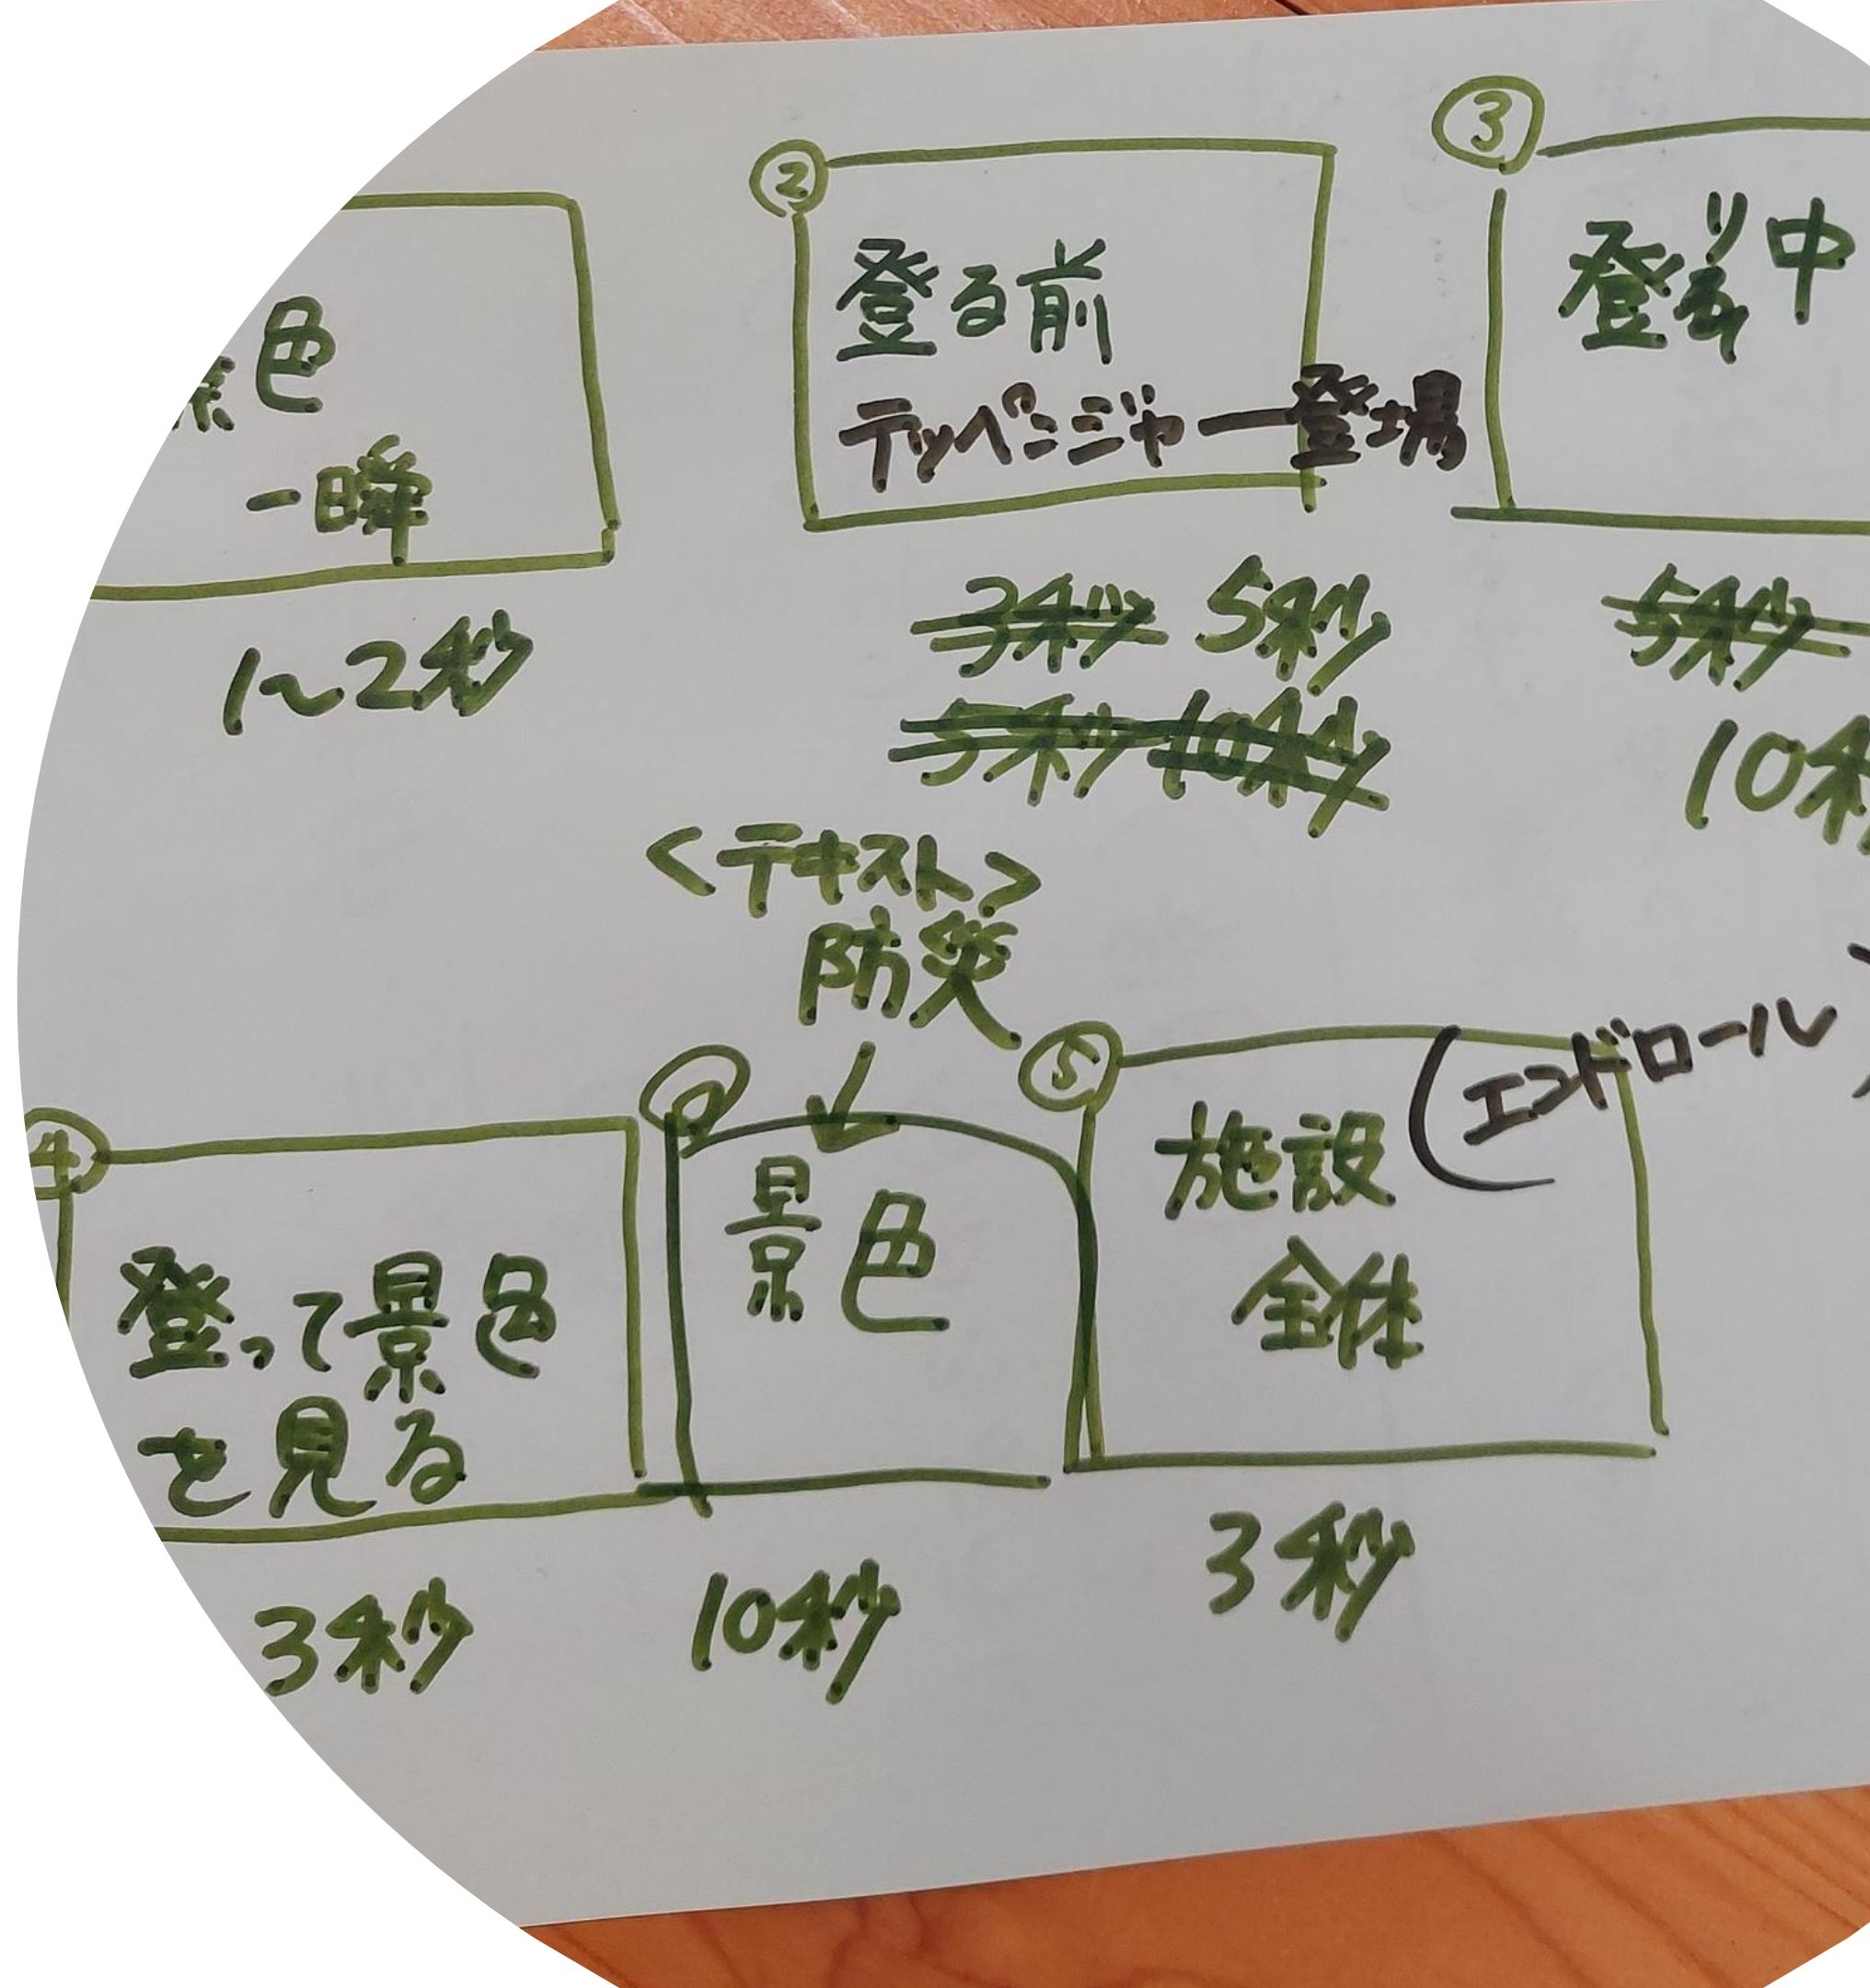 景色
一瞬
1~2秒
②
登る前
テッペンジャー登場
3秒 5秒
5秒 10秒
③
登り中
5秒
10秒
④
登って景色
を見る
3秒
<テキスト>
防災
景色
10秒
⑤
施設
全体
(エンドロール)
3秒